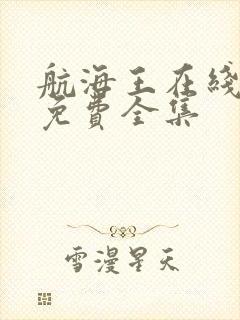 航海王在綫
免費全集
雪漫星天